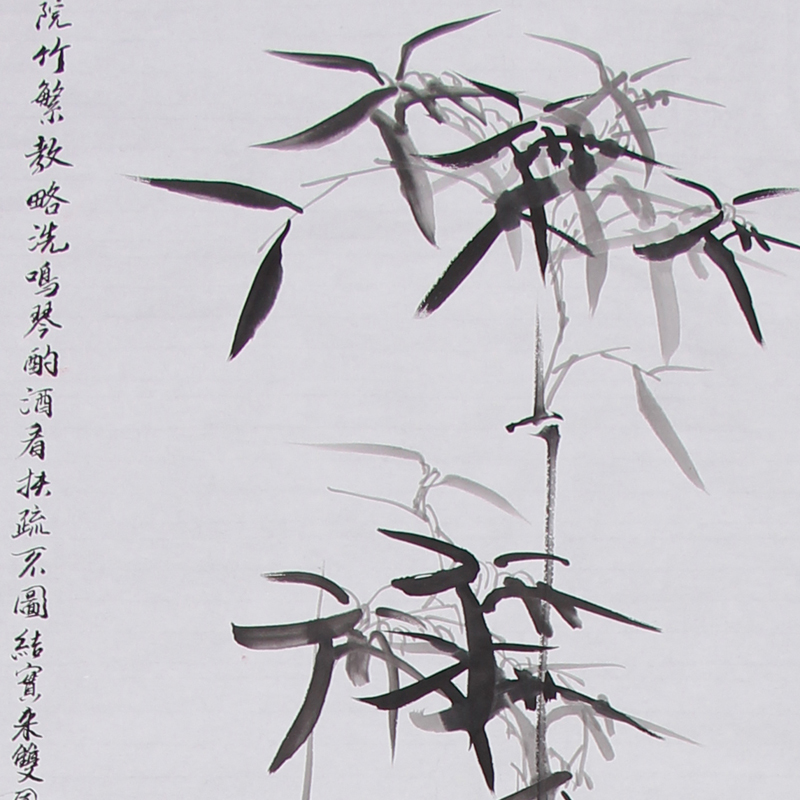 院竹繁教略洗鳴琴酌酒看扶疏不圖結實来雙